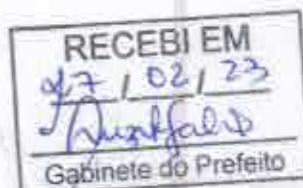 RECEBI EM
27 / 02 / 23
Gabinete do Prefeito